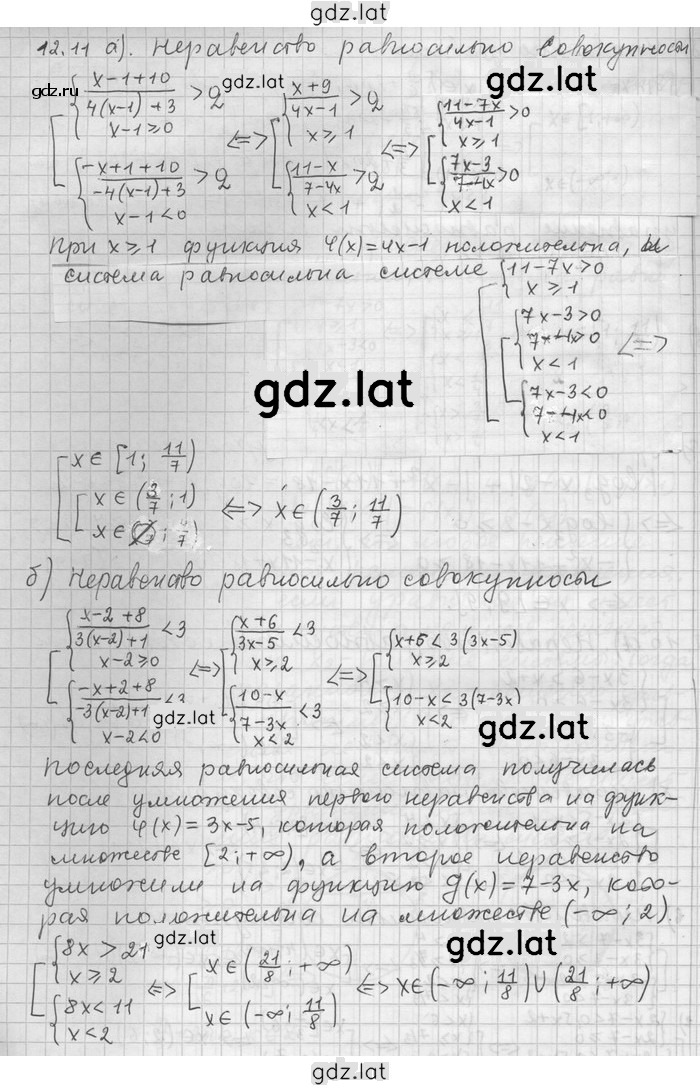 gdz.lat
12.11 а). Неравенство равносильно совокупности
gdz.ru
gdz.lat
gdz.lat
[ { (x-1+10)/(4(x-1)+3) > 2, x-1≥0; { (-x+1+10)/(-4(x-1)+3) > 2, x-1<0 <=> [ { (x+9)/(4x-1) > 2, x≥1; { (11-x)/(7-4x) > 2, x<1 <=> [ { (11-7x)/(4x-1) > 0, x≥1; { (7x-3)/(7-4x) > 0, x<1
При x≥1 функция φ(x)=4x-1 положительна, и
система равносильна системе [ { 11-7x>0, x≥1; [ { 7x-3>0, 7-4x>0, x<1; { 7x-3<0, 7-4x<0, x<1 <=>
gdz.lat
[ x∈[1; 11/7); [ x∈(3/7; 1) <=> x∈(3/7; 11/7)
б) Неравенство равносильно совокупности
[ { (x-2+8)/(3(x-2)+1) < 3, x-2≥0; { (-x+2+8)/(-3(x-2)+1) < 3, x-2<0 <=> [ { (x+6)/(3x-5) < 3, x≥2; { (10-x)/(7-3x) < 3, x<2 <=> [ { x+6<3(3x-5), x≥2; { 10-x<3(7-3x), x<2
gdz.lat
gdz.lat
Последняя равносильная система получилась
после умножения первого неравенства на функ-
цию φ(x)=3x-5, которая положительна на
множестве [2;+∞), а второе неравенство
умножили на функцию g(x)=7-3x, кото-
рая положительна на множестве (-∞; 2).
gdz.lat
gdz.lat
[ { 8x>21, x≥2; { 8x<11, x<2 <=> [ x∈(21/8; +∞); x∈(-∞; 11/8) <=> x∈(-∞; 11/8)∪(21/8; +∞)
gdz.lat